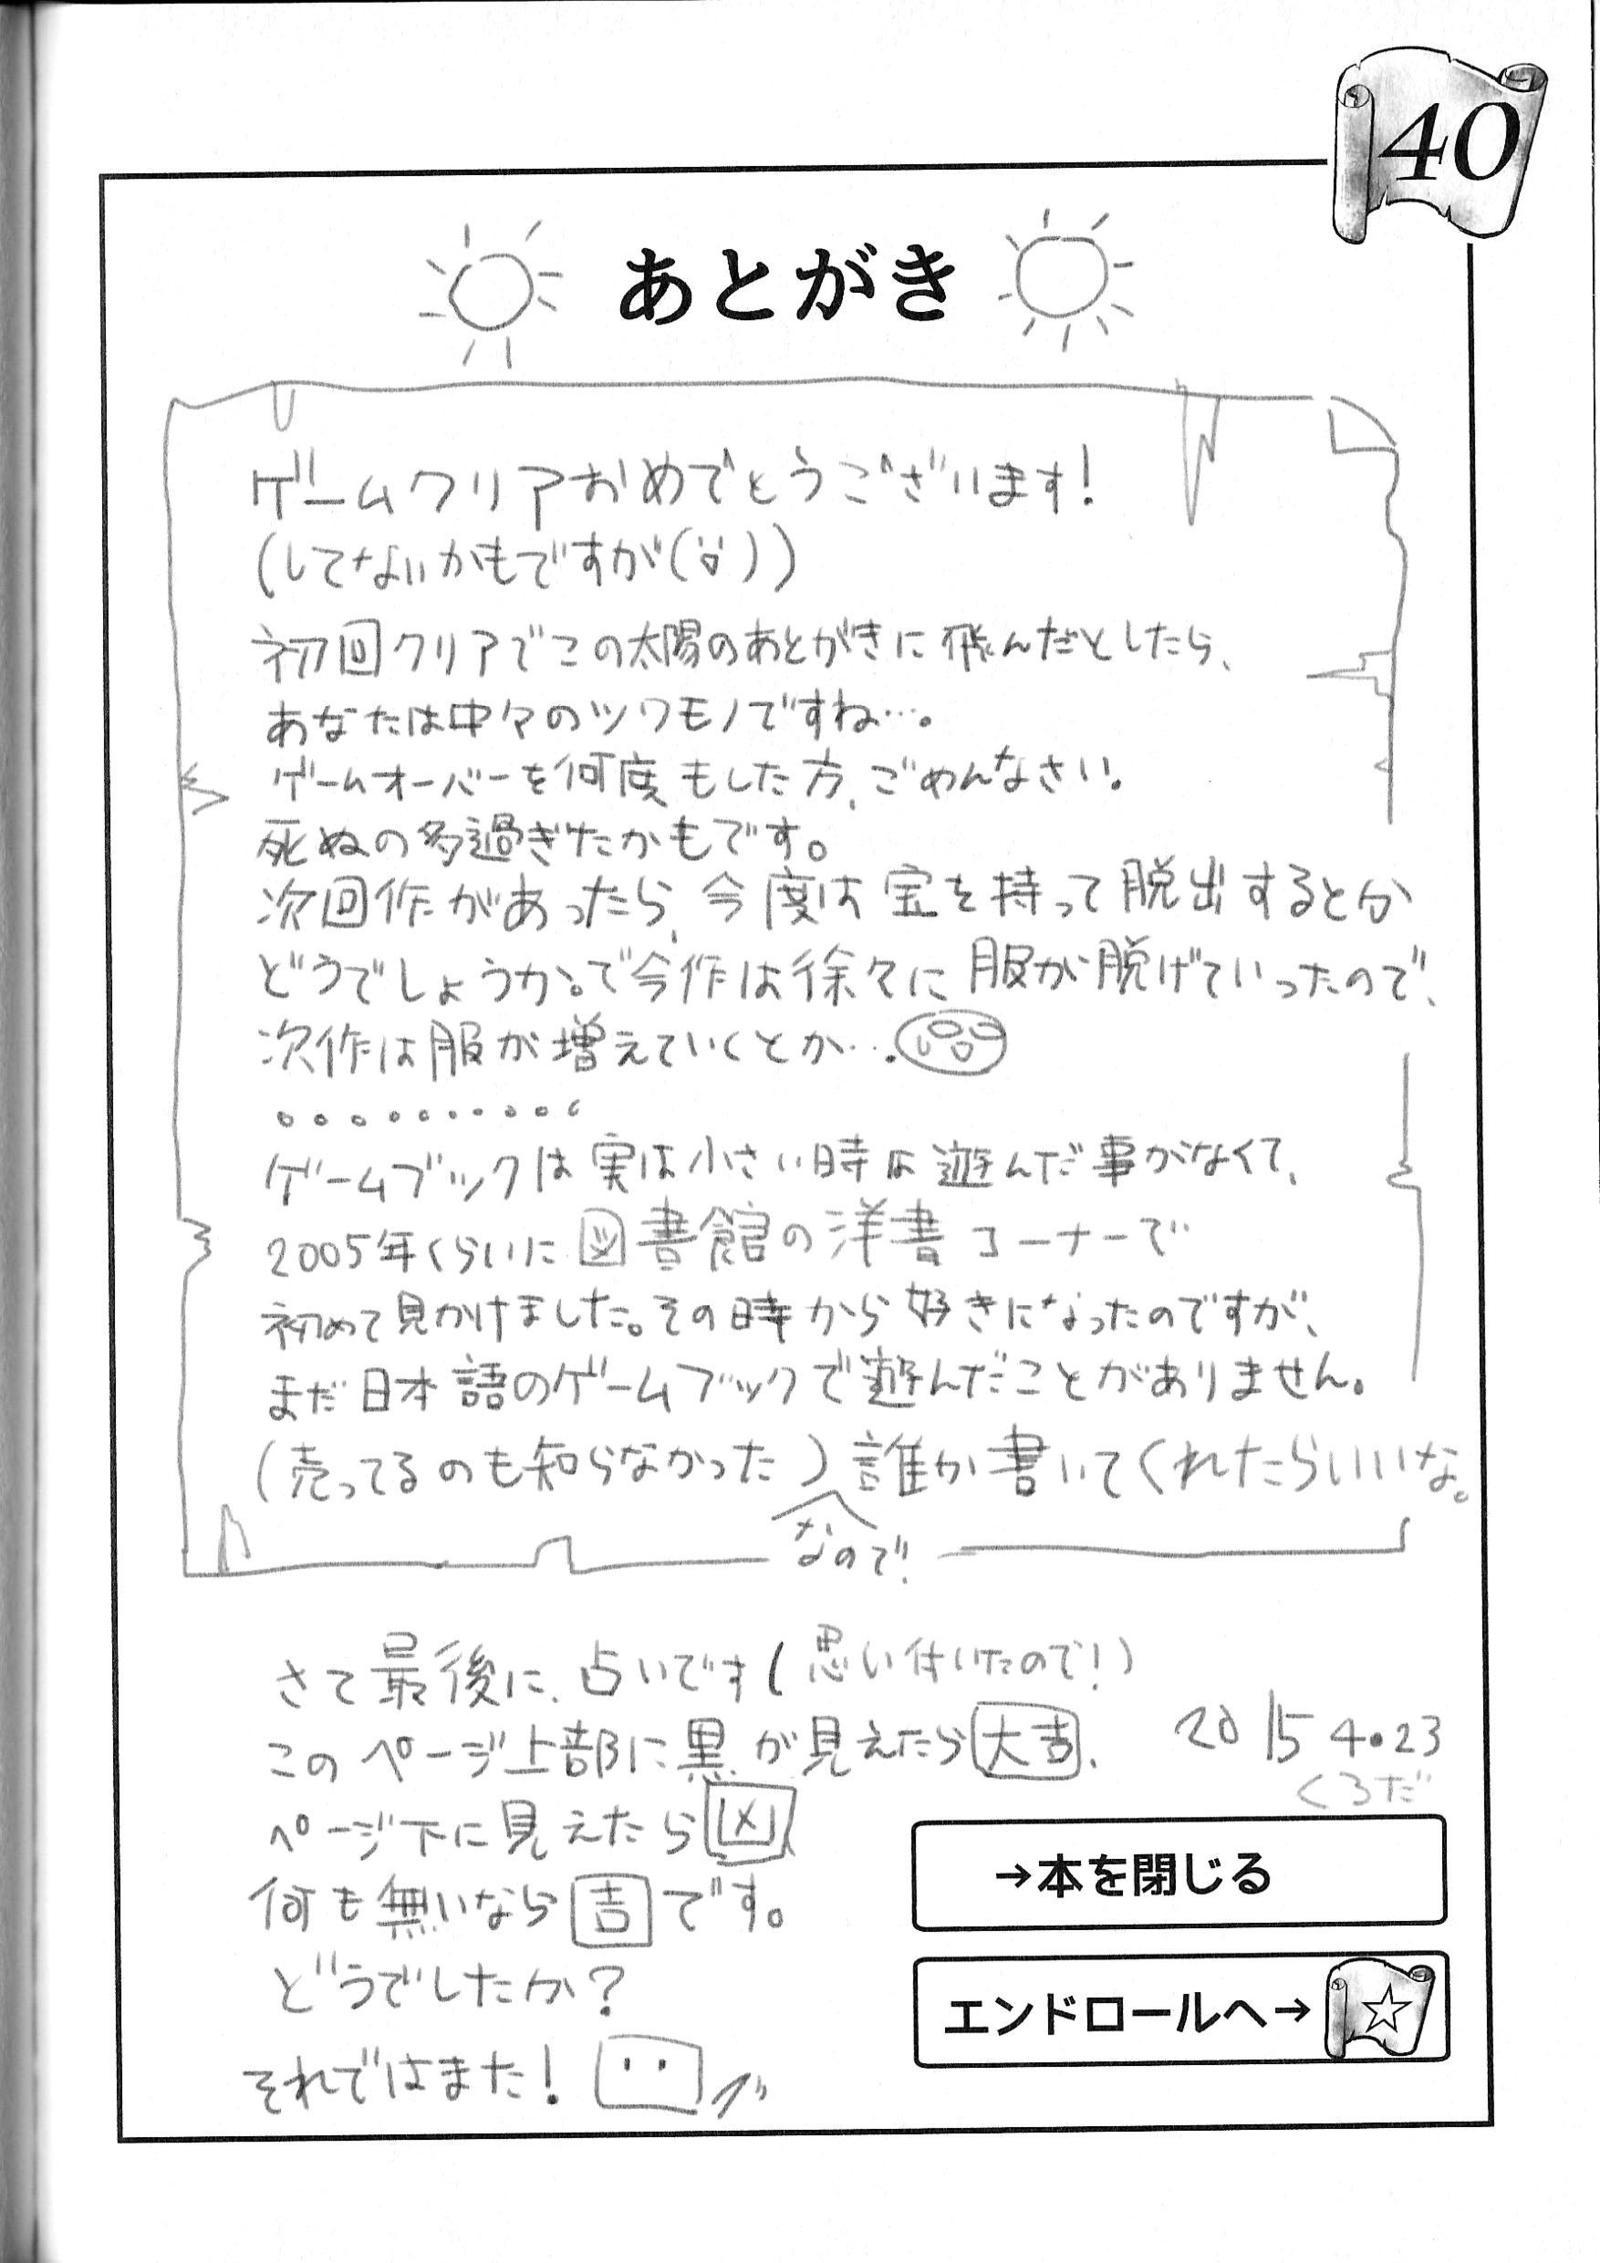 40
あとがき
ゲームクリアおめでとうございます!
(してないかもですが( ))
初回クリアでこの太陽のあとがきに飛んだとしたら、
あなたは中々のツワモノですね…。
ゲームオーバーを何度もした方、ごめんなさい。
死ぬの多過ぎたかもです。
次回作があったら、今度は宝を持って脱出するとか
どうでしょうか。で今作は徐々に服が脱げていったので、
次作は服が増えていくとか…。
。。。。。。。。。。。
ゲームブックは実は小さい時は遊んだ事がなくて、
2005年くらいに図書館の洋書コーナーで
初めて見かけました。その時から好きになったのですが、
まだ日本語のゲームブックで遊んだことがありません。
(売ってるのも知らなかった)誰か書いてくれたらいいな。
なので!
さて最後に、占いです(思い付いたので!)
このページ上部に黒が見えたら大吉、
ページ下に見えたら凶
何も無いなら吉です。
どうでしたか?
それではまた!
2015 4.23
くろだ
→本を閉じる
エンドロールへ→